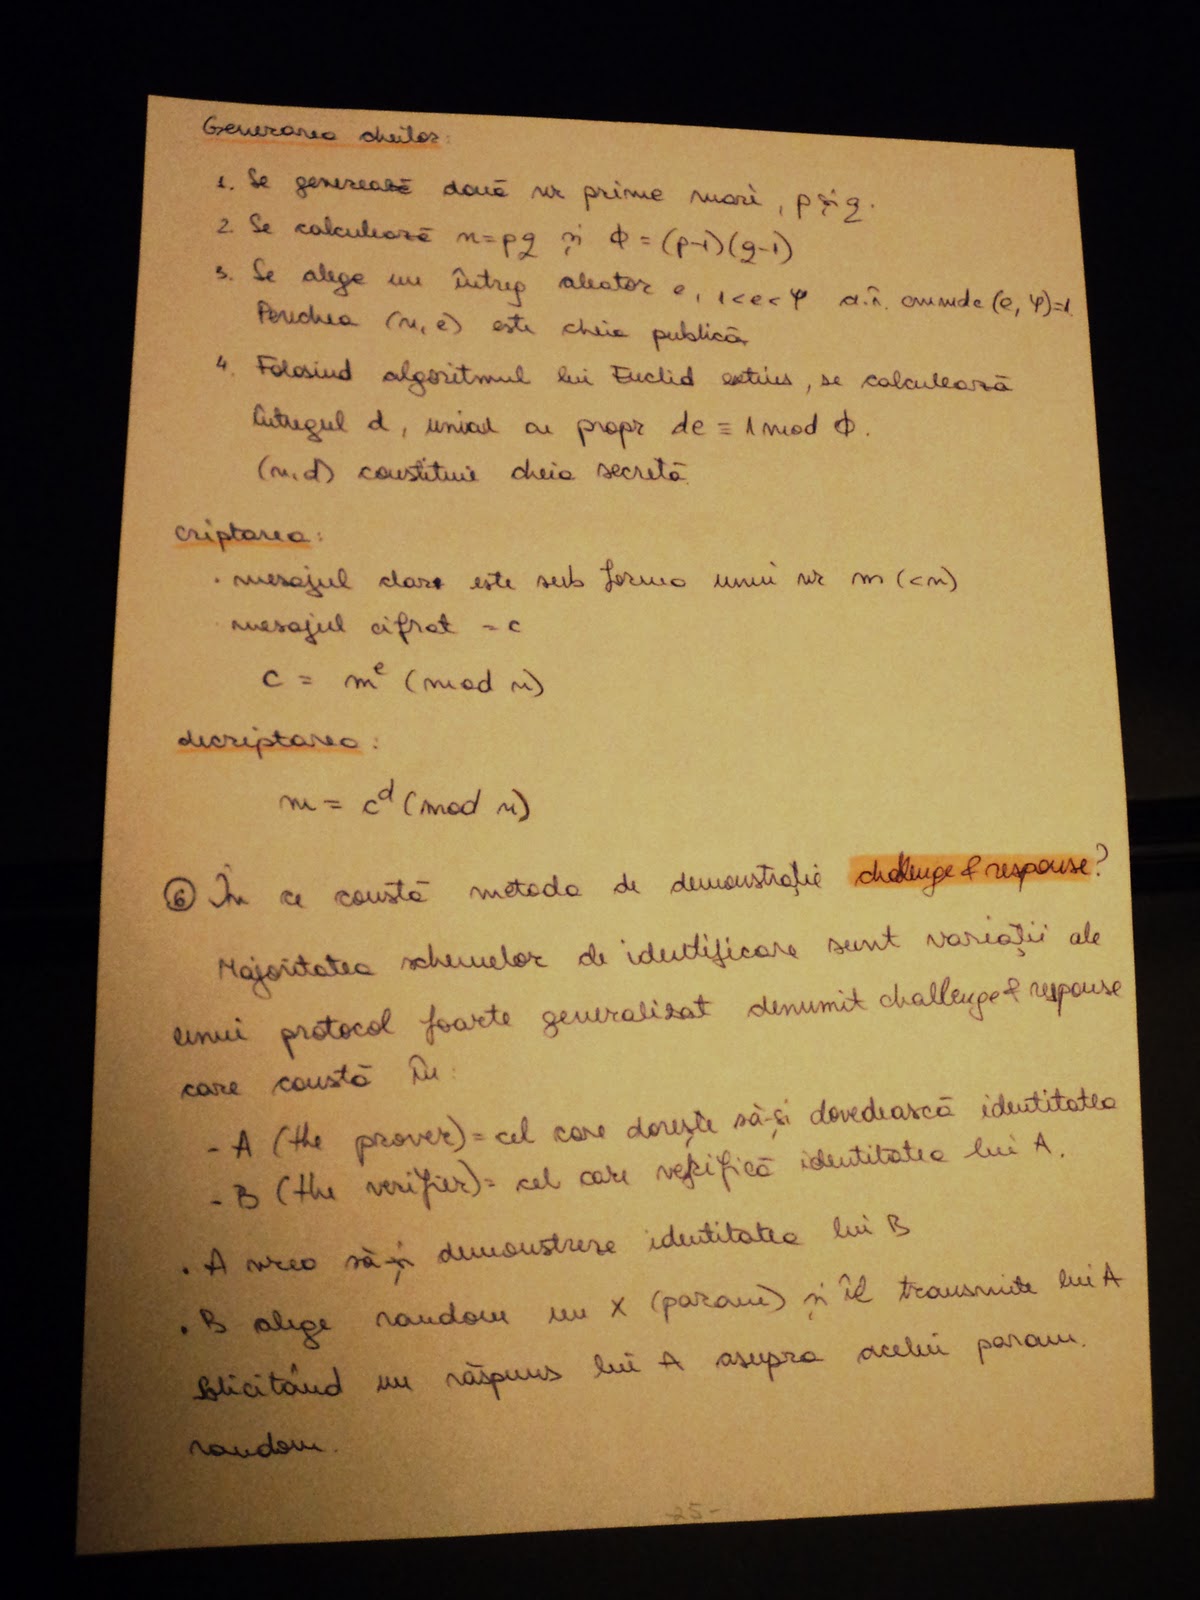 Generarea cheilor:
1. Se generează două nr prime mari, p și q.
2. Se calculează n=pq și Φ=(p-1)(q-1)
3. Se alege un întreg aleator e, 1<e<φ a.î. cmmdc(e, φ)=1.
Perechea (n,e) este cheia publică
4. Folosind algoritmul lui Euclid extins, se calculează
întregul d, unicul cu propr de ≡ 1 mod Φ.
(n,d) constituie cheia secretă.
criptarea:
· mesajul clar este sub forma unui nr m (<n)
· mesajul cifrat = c
c = m^e (mod n)
decriptarea:
m = c^d (mod n)
⑥ În ce constă metoda de demonstrație challenge & response?
Majoritatea schemelor de identificare sunt variații ale
unui protocol foarte generalizat denumit challenge & response
care constă în:
- A (the prover)= cel care dorește să-și dovedească identitatea
- B (the verifier)= cel care verifică identitatea lui A.
• A vrea să-și demonstreze identitatea lui B
• B alege random un X (param) și îl transmite lui A
solicitând un răspuns lui A asupra acelui param.
random.
-25-